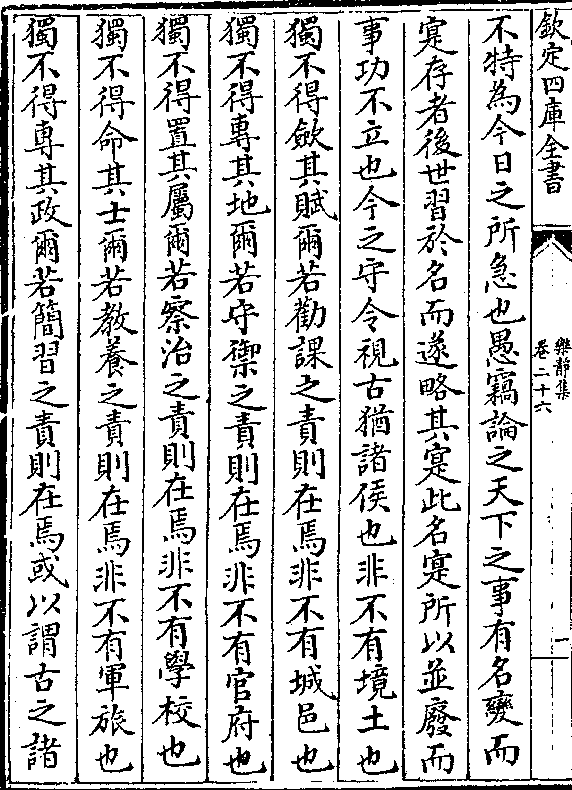 欽定四庫全書
樂靜集
卷二十六
一
不特為今日之所急也愚竊論之天下之事有名變而
寔存者後世習於名而遂略其寔此名寔所以並廢而
事功不立也今之守令視古猶諸侯也非不有境土也
獨不得斂其賦爾若勸課之責則在焉非不有城邑也
獨不得專其地爾若守禦之責則在焉非不有官府也
獨不得置其屬爾若察治之責則在焉非不有學校也
獨不得命其士爾若教養之責則在焉非不有軍旅也
獨不得專其政爾若簡習之責則在焉或以謂古之諸